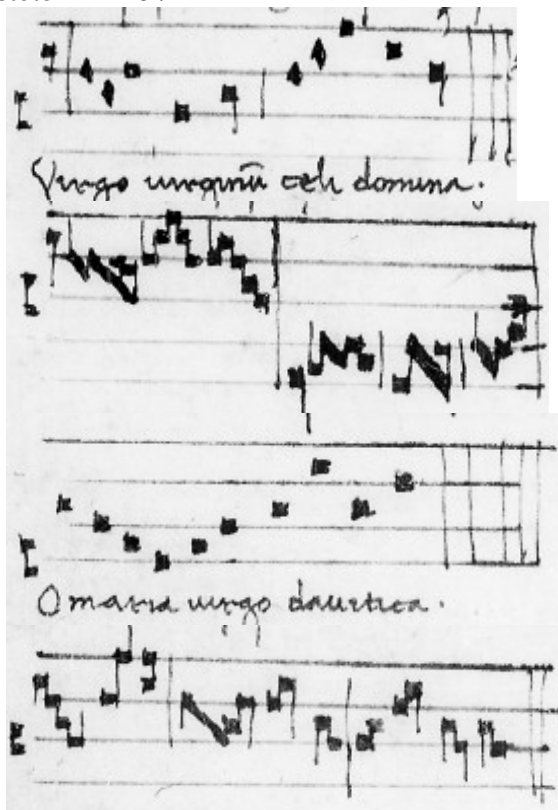 Virgo uirginū celi domina.
O maria uirgo dauitica.